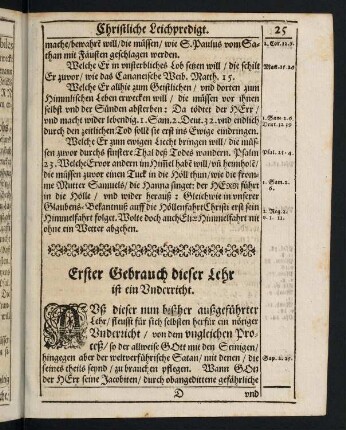 Christliche Leichpredigt. 25
mache/bewahrt will/die müssen/wie S. Paulus vom Sa-
than mit Fäusten geschlagen werden.
Welche Er in unsterbliches Lob setzen will/die schilt
Er zuvor/wie das Cananeische Weib. Matth. 15.
Welche Er allhie zum Geistlichen/und dorten zum
Himmlischen Leben erwecken will/die müssen vor ihnen
selbst und der Sünden absterben: Da tödtet der HErr/
und macht wider lebendig. 1. Sam. 2. Deut. 32. und endlich
durch den zeitlichen Tod sollē sie erst ins Ewige eindringen.
Welche Er zum ewigen Liecht bringen will/die müs-
sen zuvor durchs finstere Thal deß Todes wandern. Psalm
23. Welche Er vor andern im Hiṁel habē will/uñ hernholē/
die müssen zuvor einen Tuck in die Höll thun/wie die from-
me Mutter Samuels/die Hanna singet: der HERR führet
in die Hölle/und wider herauß: Gleichwie in unserer
Glaubens-Bekantnuß auff die Höllenfahrt Christi erst sein
Himmelfahrt folget. Wolte doch auch Eliæ Himmelfahrt nit
ohne ein Wetter abgehen.
2. Cor. 12. 7.
Matt. 15. 26
1. Sam 2. 6
Deut. 32. 39
Psal. 23. 4.
1. Sam. 2.
6.
2. Reg. 2.
v. 1. 11.
Erster Gebrauch dieser Lehr
ist ein Underricht.
AUß dieser nun bißher außgeführter
Lehr/fleust für sich selbsten herfür ein nötiger
Underricht/von dem ungleichen Pro-
ceß/so der allweise GOtt mit den Seinigen/
hingegen aber der weltverführische Satan/mit denen/die
seines theils seynd/zu brauchen pflegen. Wann GOtt
der HErr seine Jacobiten/durch obangedittene gefährliche
Sap. 2. 25.
D und